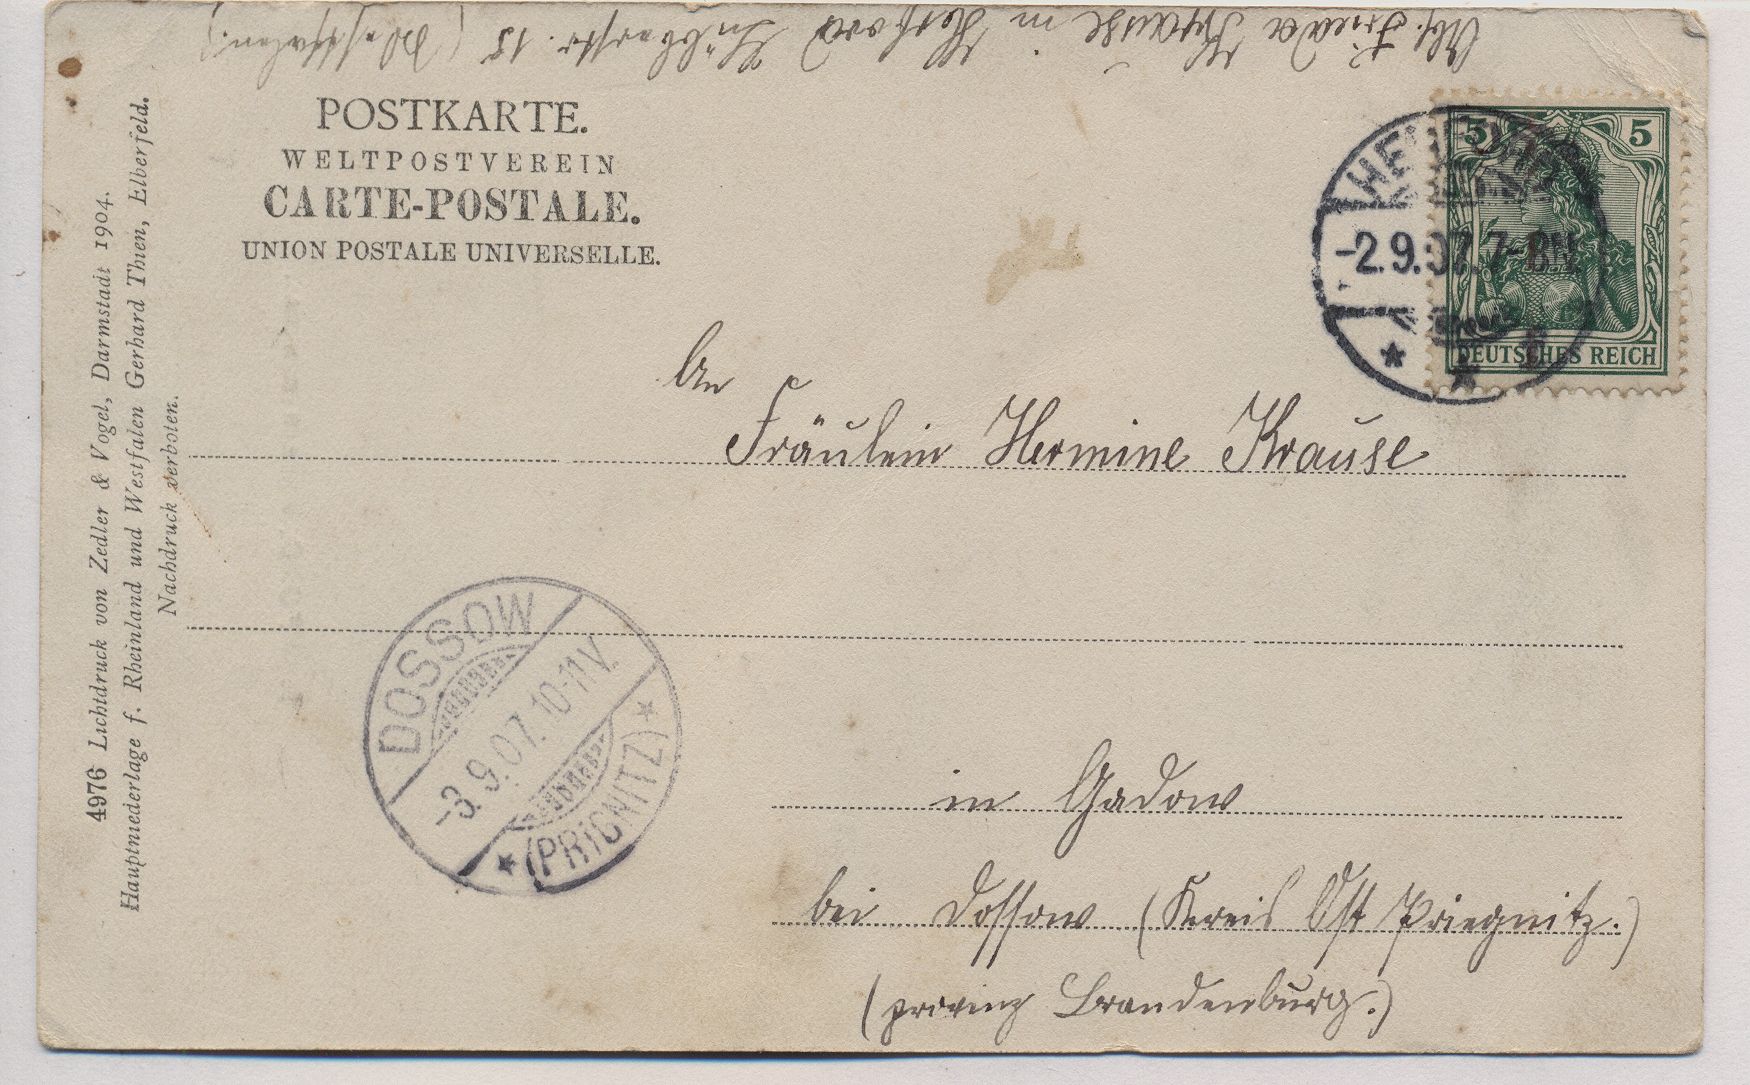 Abs. Frieda Krause in Herford Lübberstr. 15 (Westfalen.)
POSTKARTE.
WELTPOSTVEREIN
CARTE-POSTALE.
UNION POSTALE UNIVERSELLE.
4976 Lichtdruck von Zedler & Vogel, Darmstadt 1904.
Hauptniederlage f. Rheinland und Westfalen Gerhard Thien, Elberfeld.
Nachdruck verboten.
5 5
DEUTSCHES REICH
-2.9.07. 7-8N.
An
Fräulein Hermine Krause
DOSSOW
-3.9.07. 10-11V.
(PRIGNITZ)
in Gadow
bei Dossow (Kreis Ost Priegnitz.)
(provinz Brandenburg.)